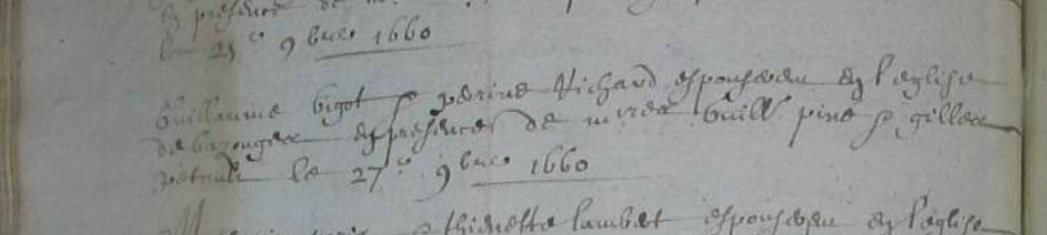 en presence de
le 25e 9bre 1660
Guillaume bigot & perine Richard espouserēt en leglise
de bazouges en presence de mree Guill pine & gilles
le 27e 9bre 1660
& thienette lambet espouserēt en leglise